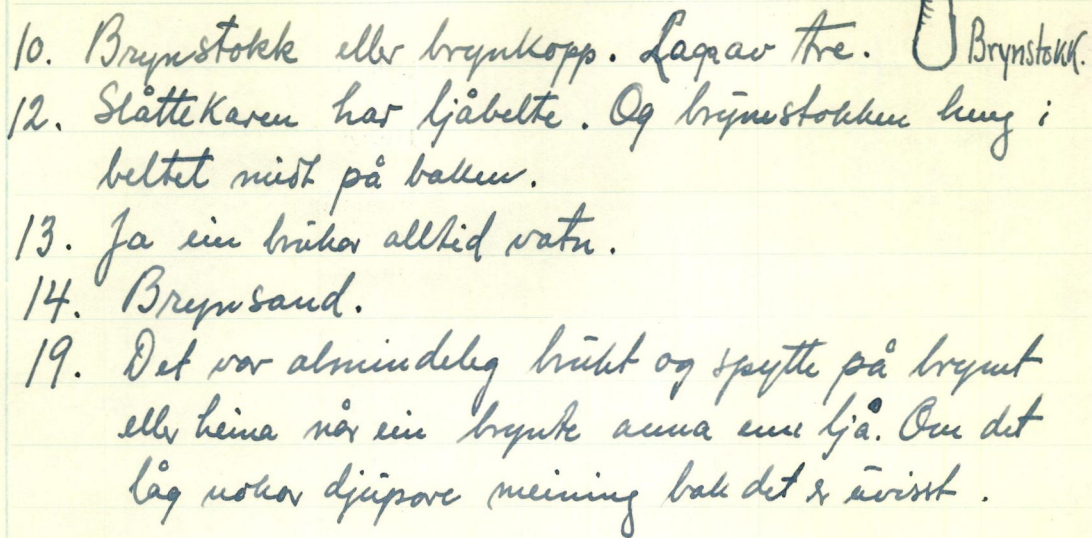 10. Brynstokk eller brynkopp. Laga av tre. Brynstokk.
12. Slåttekaren har ljåbelte. Og brynestokken heng i
beltet midt på baken.
13. Ja ein brukar alltid vatn.
14. Brynsand.
19. Det var almindeleg brukt og spytte på brynet
eller heina når ein brynte anna enn ljå. Om det
låg nokor djupare meining bak det er uvisst.